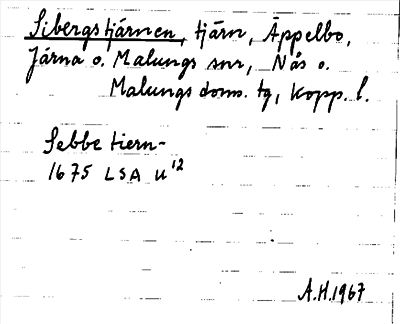 Sibergstjärnen, tjärn, Äppelbo,
Järna o. Malungs snr, Nås o.
Malungs doms. tg, Kopp. l.
Sebbe tiern-
1675 LSA U12
A.H. 1967